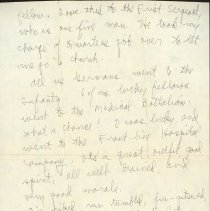 fellow. I owe this to the First Sergeant,
who is one fine man. He took my
charge of Quarters job over to let
me go to church.
all us Germans went to the
Infantry of us lucky fellows
went to the Medical Battalion.
What a chance! I was lucky and
went to the Front line Hospital
Company. It's a great outfit, good
spirit, all well trained and
very good morale.
hiked ran tumbled, pitched